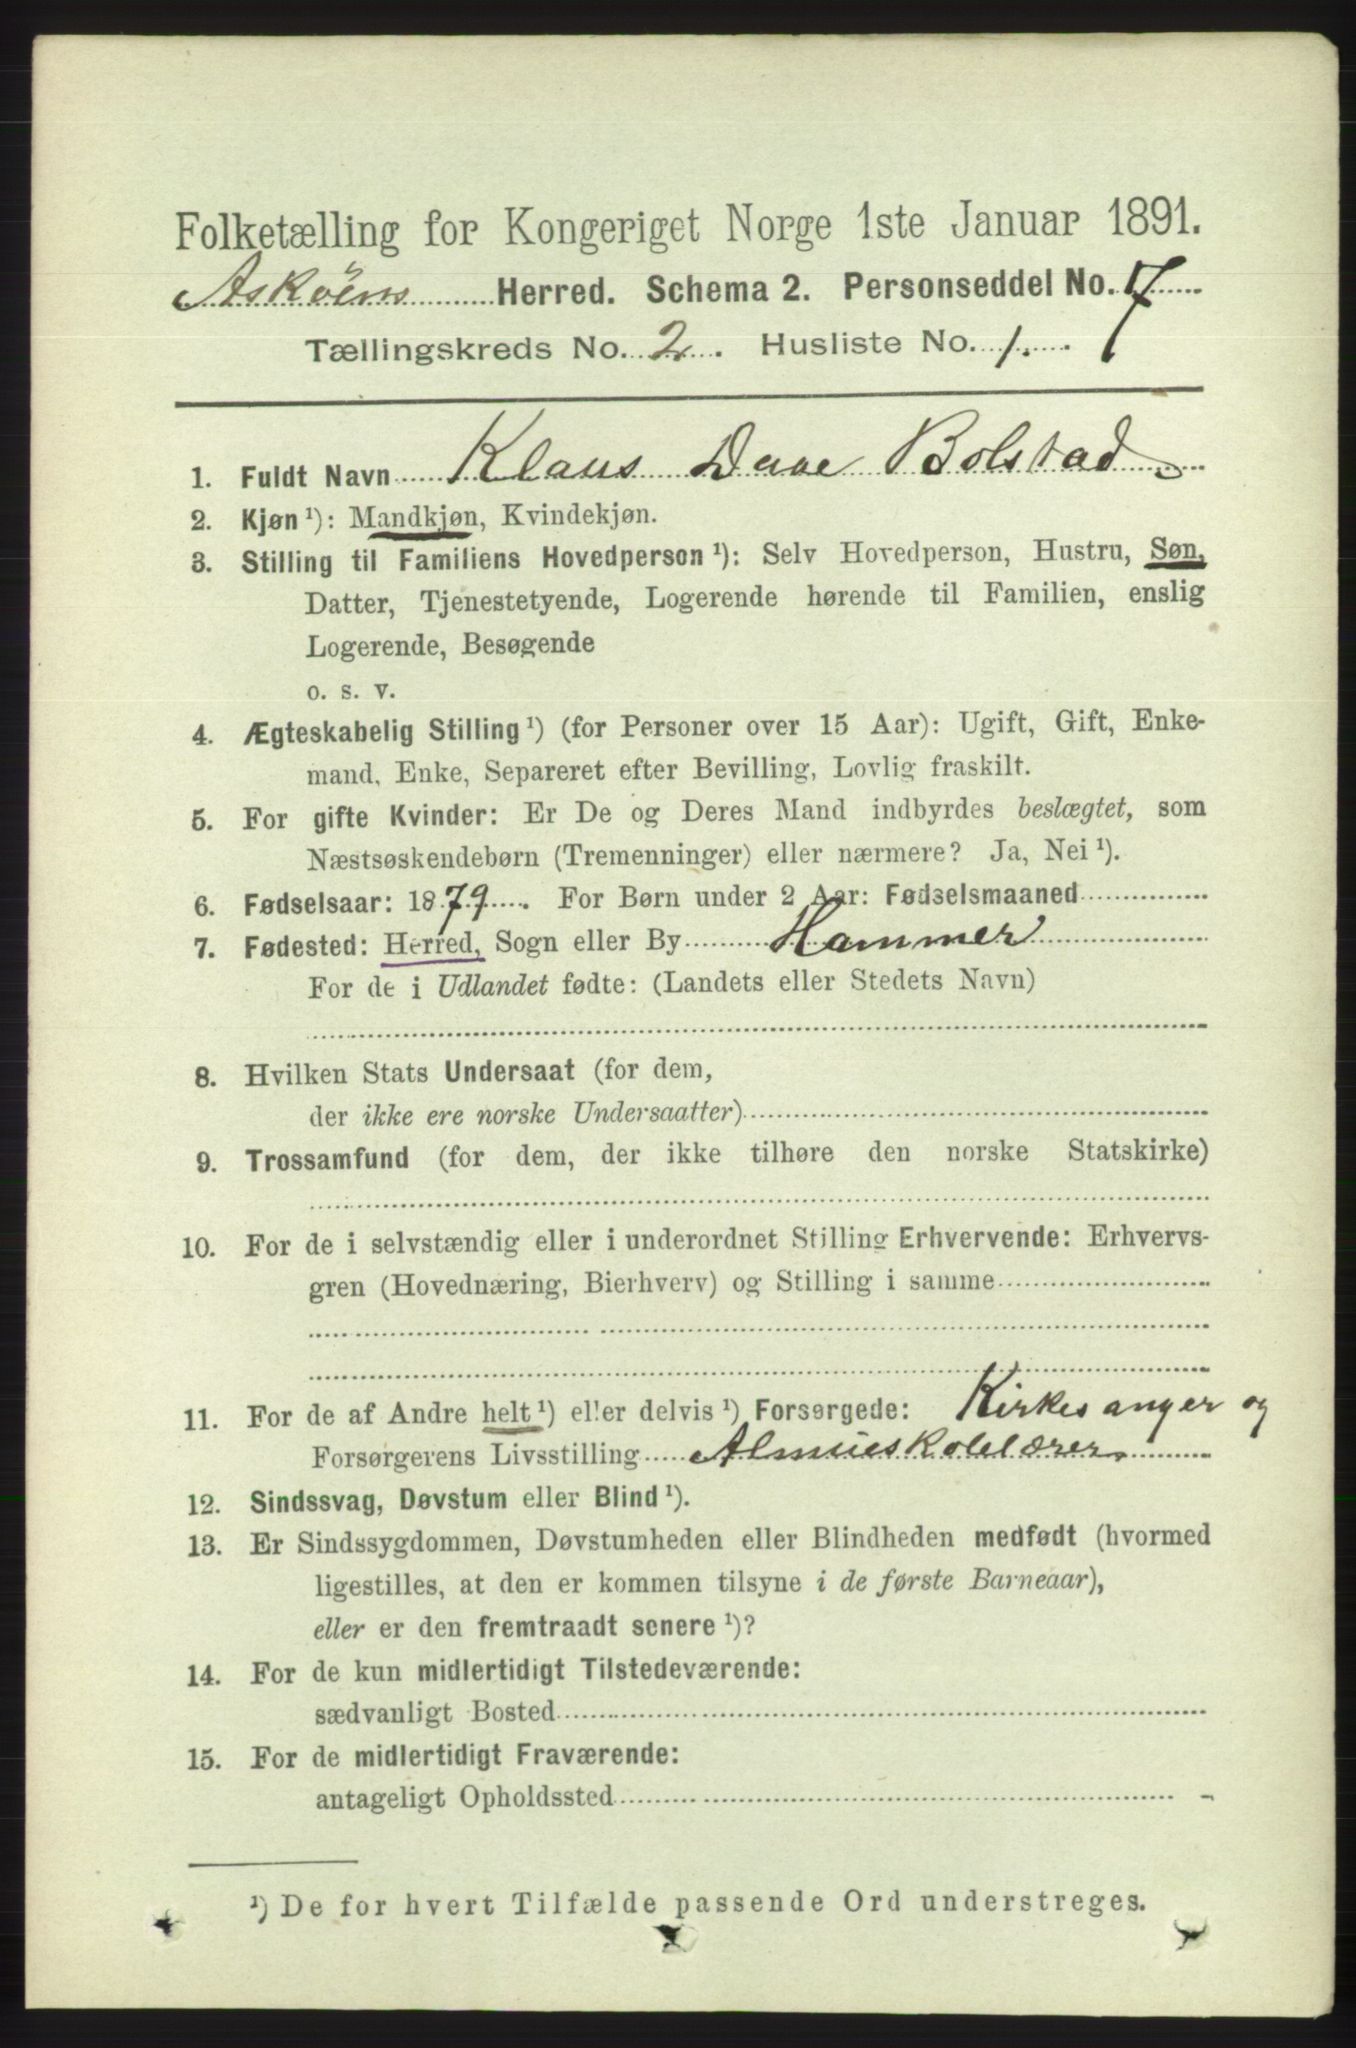 Folketælling for Kongeriget Norge 1ste Januar 1891.
Askøens Herred. Schema 2. Personseddel No. 7
Tællingskreds No. 2. Husliste No. 1.
1. Fuldt Navn Klaus Daae Bolstad
2. Kjøn ¹): Mandkjøn, Kvindekjøn.
3. Stilling til Familiens Hovedperson ¹): Selv Hovedperson, Hustru, Søn,
Datter, Tjenestetyende, Logerende hørende til Familien, enslig
Logerende, Besøgende
o. s. v.
4. Ægteskabelig Stilling ¹) (for Personer over 15 Aar): Ugift, Gift, Enke-
mand, Enke, Separeret efter Bevilling, Lovlig fraskilt.
5. For gifte Kvinder: Er De og Deres Mand indbyrdes beslægtet, som
Næstsøskendebørn (Tremenninger) eller nærmere? Ja, Nei ¹).
6. Fødselsaar: 1879. For Børn under 2 Aar: Fødselsmaaned
7. Fødested: Herred, Sogn eller By Hammer
For de i Udlandet fødte: (Landets eller Stedets Navn)
8. Hvilken Stats Undersaat (for dem,
der ikke ere norske Undersaatter)
9. Trossamfund (for dem, der ikke tilhøre den norske Statskirke)
10. For de i selvstændig eller i underordnet Stilling Erhvervende: Erhvervs-
gren (Hovednæring, Bierhverv) og Stilling i samme
11. For de af Andre helt ¹) eller delvis ¹) Forsørgede: Kirkesanger og
Forsørgerens Livsstilling Almueskolelærer
12. Sindssvag, Døvstum eller Blind ¹).
13. Er Sindssygdommen, Døvstumheden eller Blindheden medfødt (hvormed
ligestilles, at den er kommen tilsyne i de første Barneaar),
eller er den fremtraadt senere ¹)?
14. For de kun midlertidigt Tilstedeværende:
sædvanligt Bosted
15. For de midlertidigt Fraværende:
antageligt Opholdssted
¹) De for hvert Tilfælde passende Ord understreges.